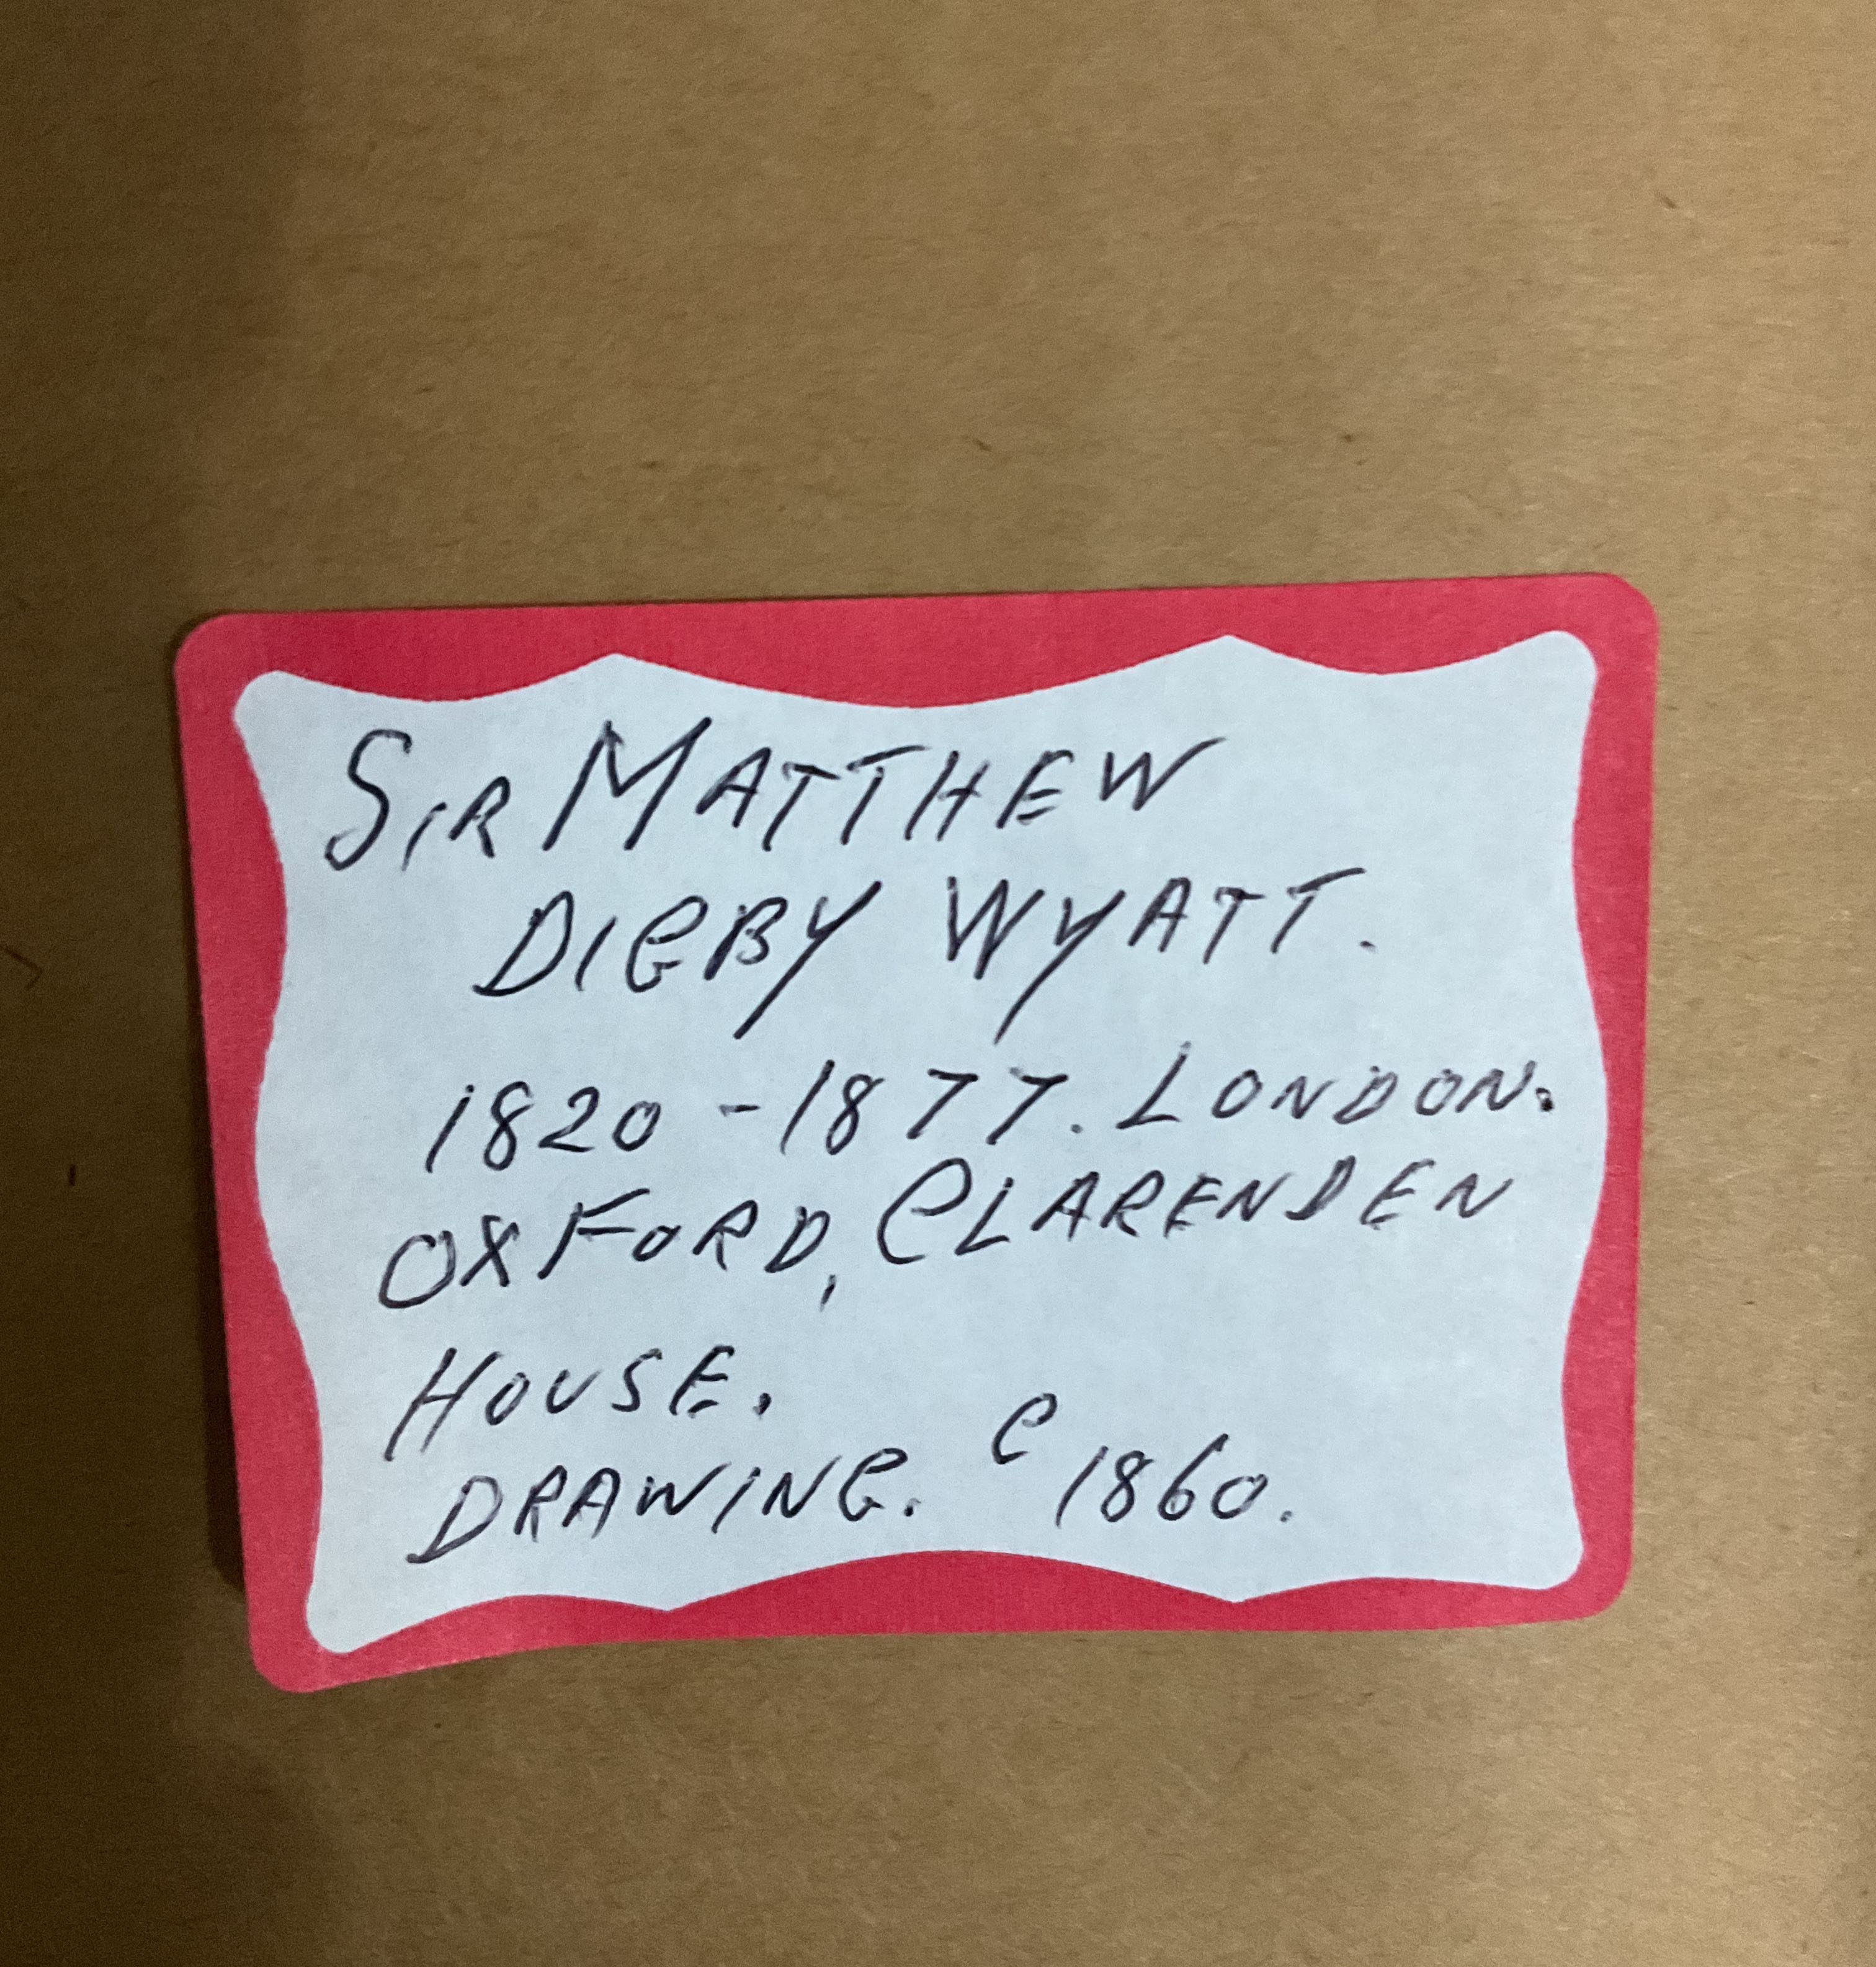 SIR MATTHEW
DIGBY WYATT.
1820-1877. LONDON.
OXFORD, CLARENDEN
HOUSE.
DRAWING. C 1860.